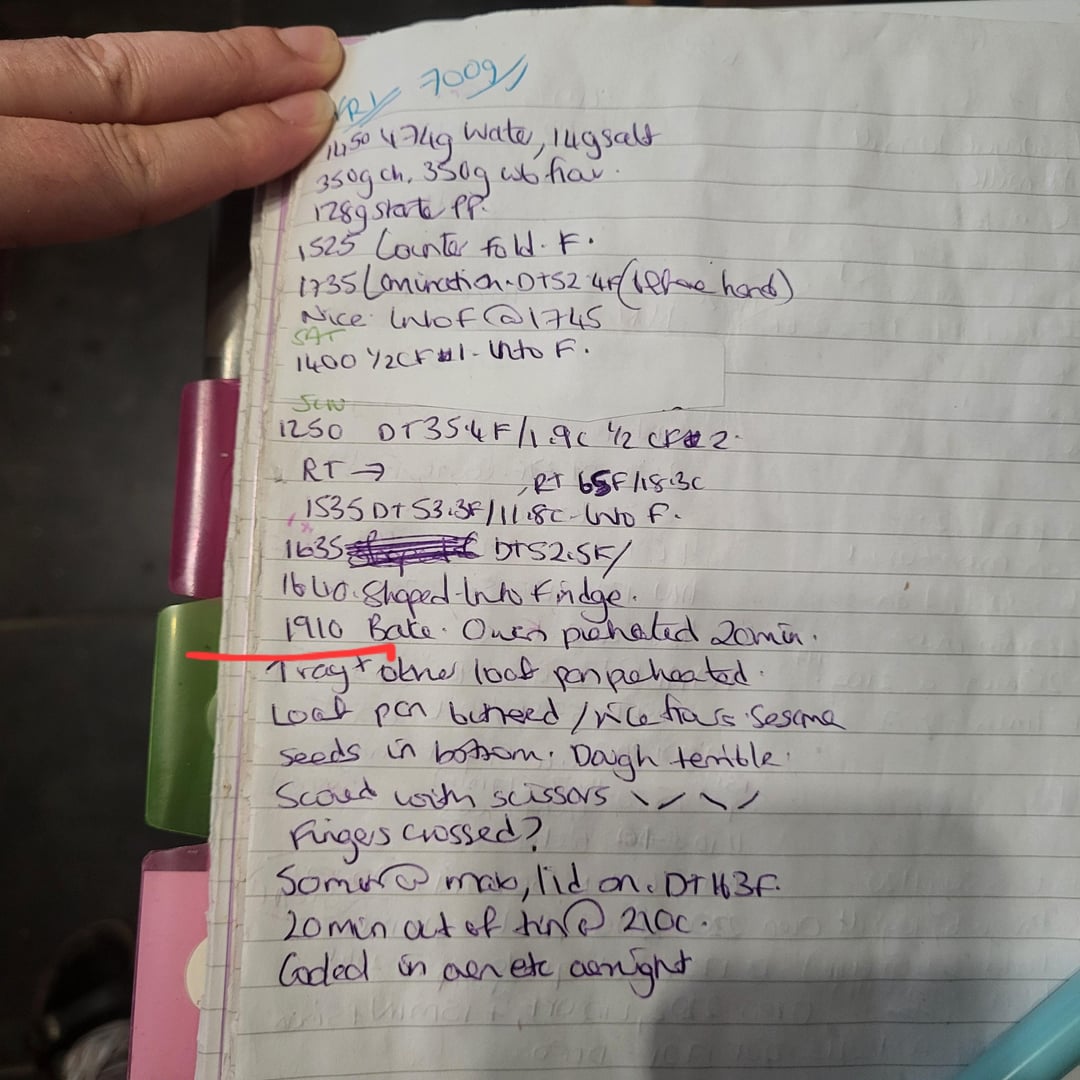 FRI 700g
1450 474g Water, 14g salt
350g ch, 350g wb flour.
128g starter PP.
1525 Counter fold. F.
1735 Lamination. DT52.4F (before hand)
Nice. Into F @ 1745
SAT
1400 1/2 CF #1. Into F.
SUN
1250 DT35.4F/1.9C 1/2 CF #2.
RT → , RT 65F/18.3C
1535 DT 53.3F/11.8C. Into F.
1635 DT52.5F/
1640. Shaped. Into Fridge.
1910 Bake. Oven preheated 20min.
Tray + other loaf pan preheated.
Loaf pan buttered / rice flour. Sesame
seeds in bottom. Dough terrible.
Scored with scissors \ / \ /
Fingers crossed?
50min @ max, lid on. DT 163F.
20min out of tin @ 210C.
Cooled in oven etc overnight